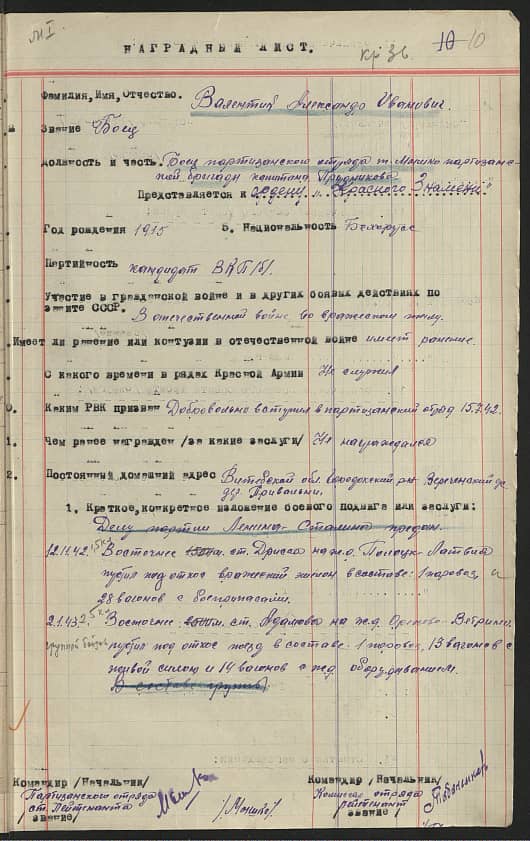 НАГРАДНЫЙ ЛИСТ.
10 10
Фамилия, Имя, Отчество. Валентик Александр Иванович.
Звание Боец
Должность и часть. Боец партизанского отряда
бригады капитана Прудникова
Представляется к ордену "Красного Знамени"
Год рождения 1915 5. Национальность Белорусс
Партийность кандидат ВКП/б/.
Участие в гражданской войне и в других боевых действиях по
защите СССР. В отечественной войне, во вражеском тылу.
Имеет ли ранение или контузии в отечественной войне имеет ранение.
С какого времени в рядах Красной Армии Не служил
0. Каким РВК призван Добровольно вступил в партизанский отряд 42.
1. Чем ранее награжден /за какие заслуги/ Не награждался
2. Постоянный домашний адрес Витебской обл. Городокский р-н
1. Краткое, конкретное изложение боевого подвига или заслуги:
Делу партии Ленина-Сталина предан.
12.11.42. Восточнее ст. Дрисса на ж.д. Полоцк-Латвия
пустил под откос вражеский эшелон в составе: 1 паровоз, и
28 вагонов с боеприпасами.
2.1.43. Восточнее ст. Адамово на ж.д.
группой бойцов пустил под откос поезд в составе 1 паровоз, 13 вагонов с
живой силой и 14 вагонов с ж.д. оборудованием.
В составе группы
Командир /Начальник/ Командир /Начальник/
Партизанского отряда Комиссар отряда
ст. Лейтенанта лейтенант
звание/ звание/